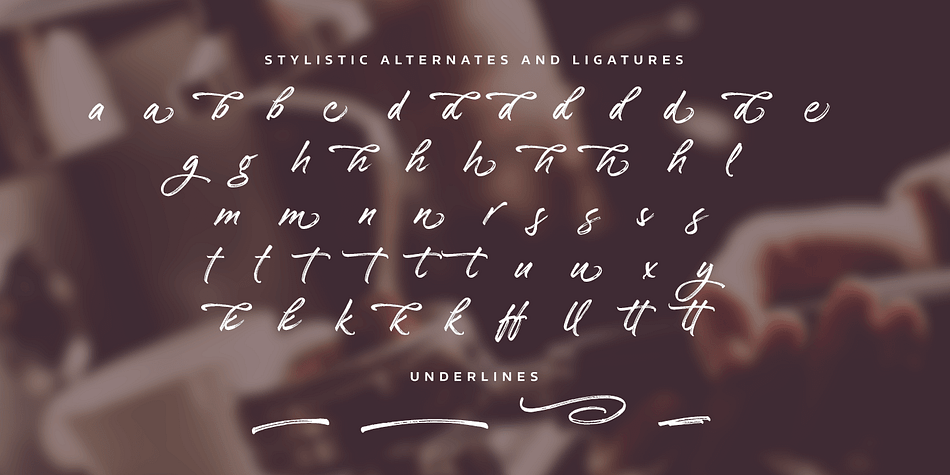 STYLISTIC ALTERNATES AND LIGATURES
a a b b c d d d d d d d e
g g h h h h h h h l
m m n n r s s s s s
t t t t t t u u x y
k k k k k ff ll tt tt
UNDERLINES